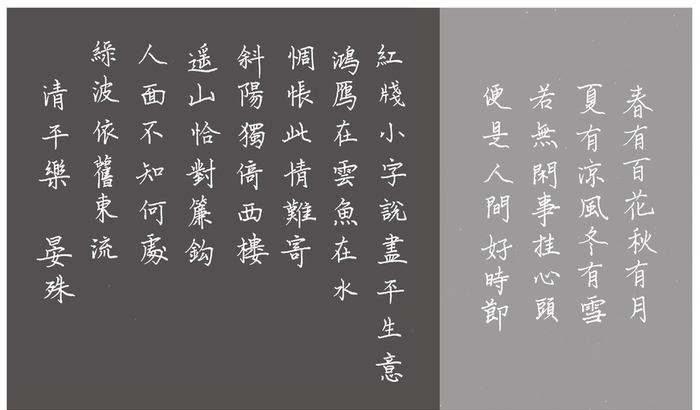 春有百花秋有月
夏有凉風冬有雪
若無閑事挂心頭
便是人間好時節
紅牋小字說盡平生意
鴻鴈在雲魚在水
惆悵此情難寄
斜陽獨倚西樓
遥山恰對簾鈎
人面不知何處
緑波依舊東流
清平樂 晏殊